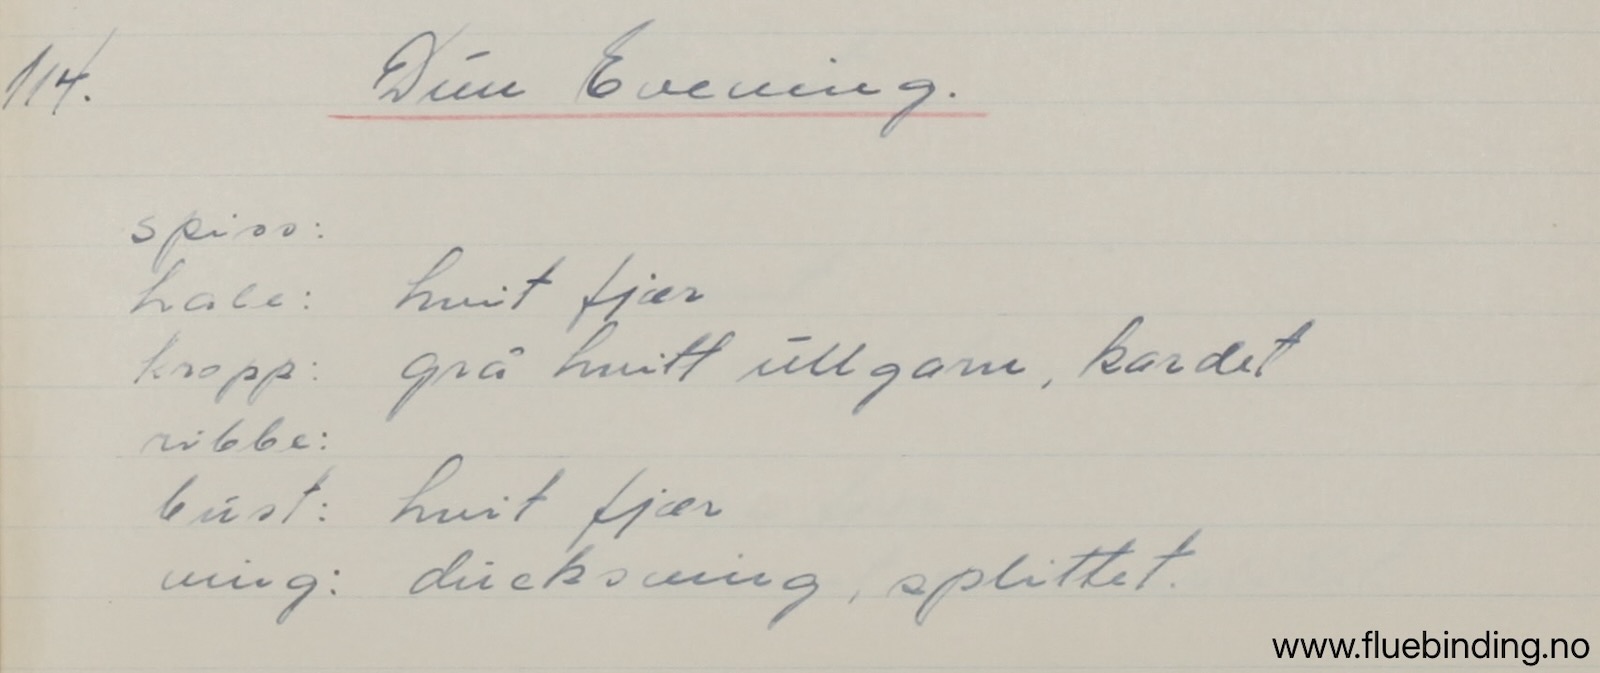 114.
Dun Evening.
spiss:
hale: hvit fjær
kropp: grå hvitt ullgarn, kardet
ribbe:
bust: hvit fjær
ving: ducksving, splittet.
www.fluebinding.no